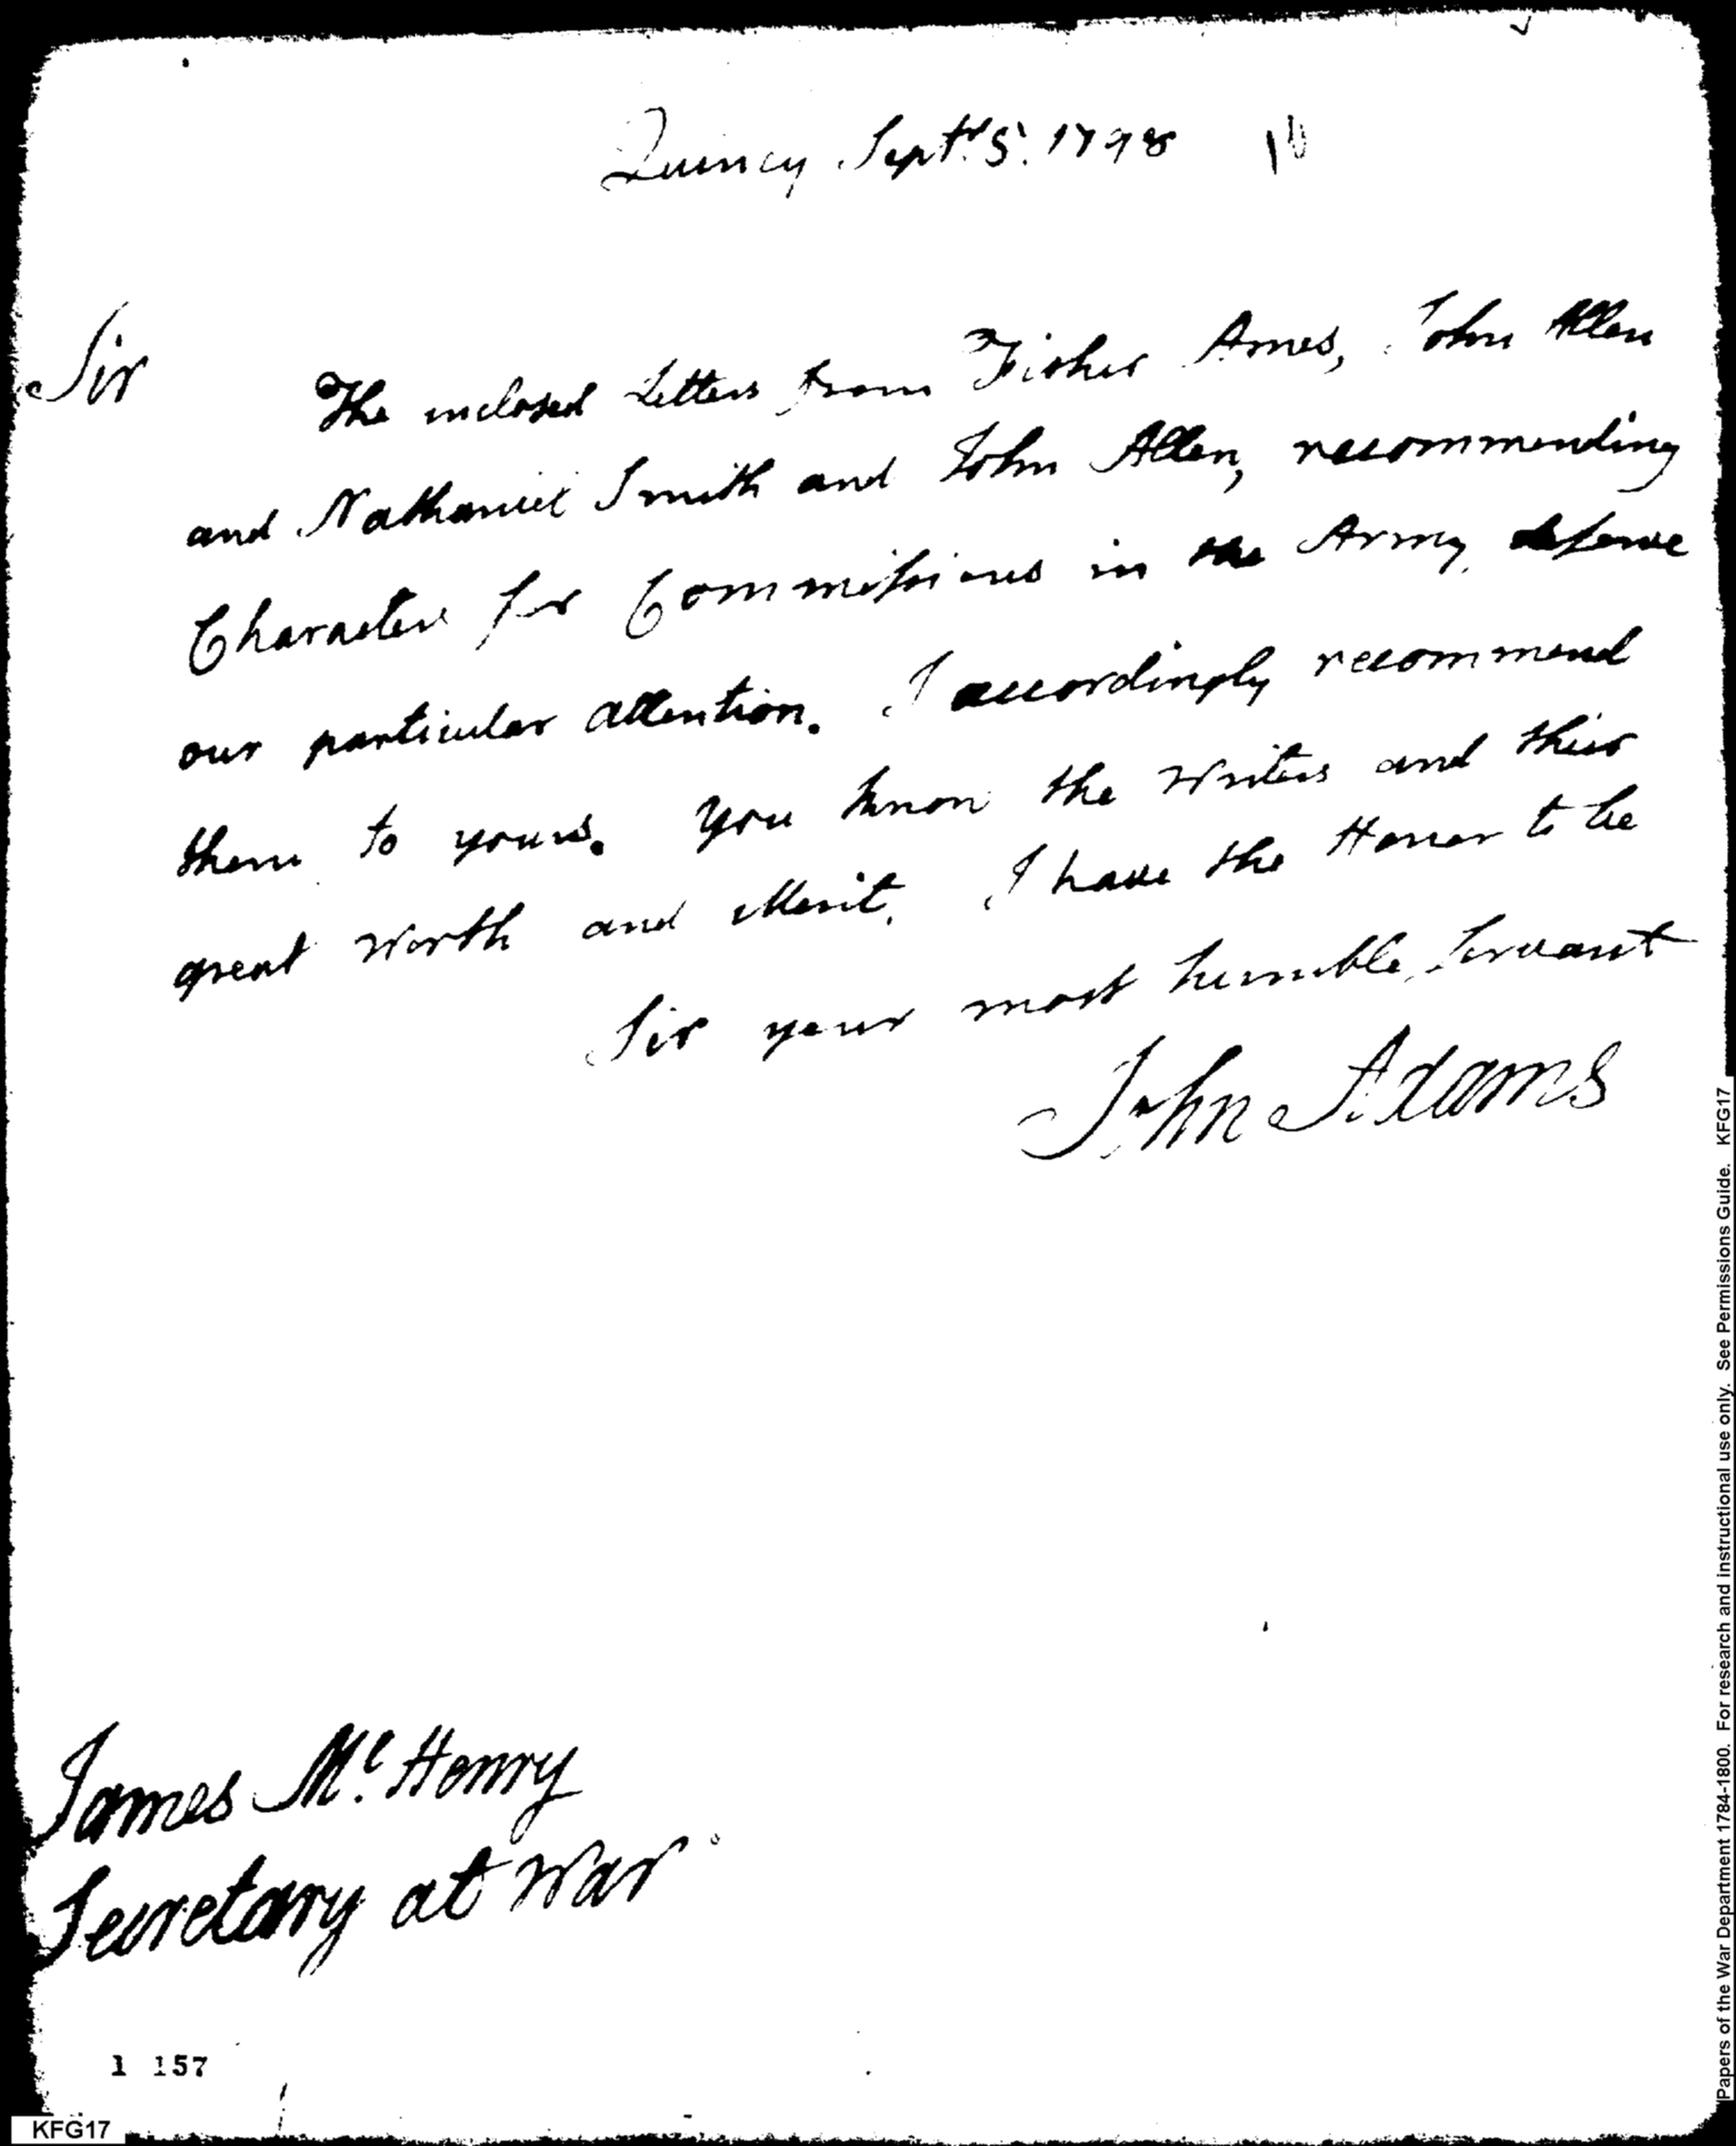 Quincy Sept. 5. 1798
Sir
The inclosed Letters from Fisher Ames, John Allen
and Nathaniel Smith and John Allen, recommending
Characters for Commissions in the Army, deserve
our particular attention. I accordingly recommend
them to yours. You know the Writers and their
great Worth and Merit. I have the Honor to be
Sir your most humble Servant
John Adams
James McHenry
Secretary at War
1 157
KFG17
Papers of the War Department 1784-1800. For research and instructional use only. See Permissions Guide. KFG17